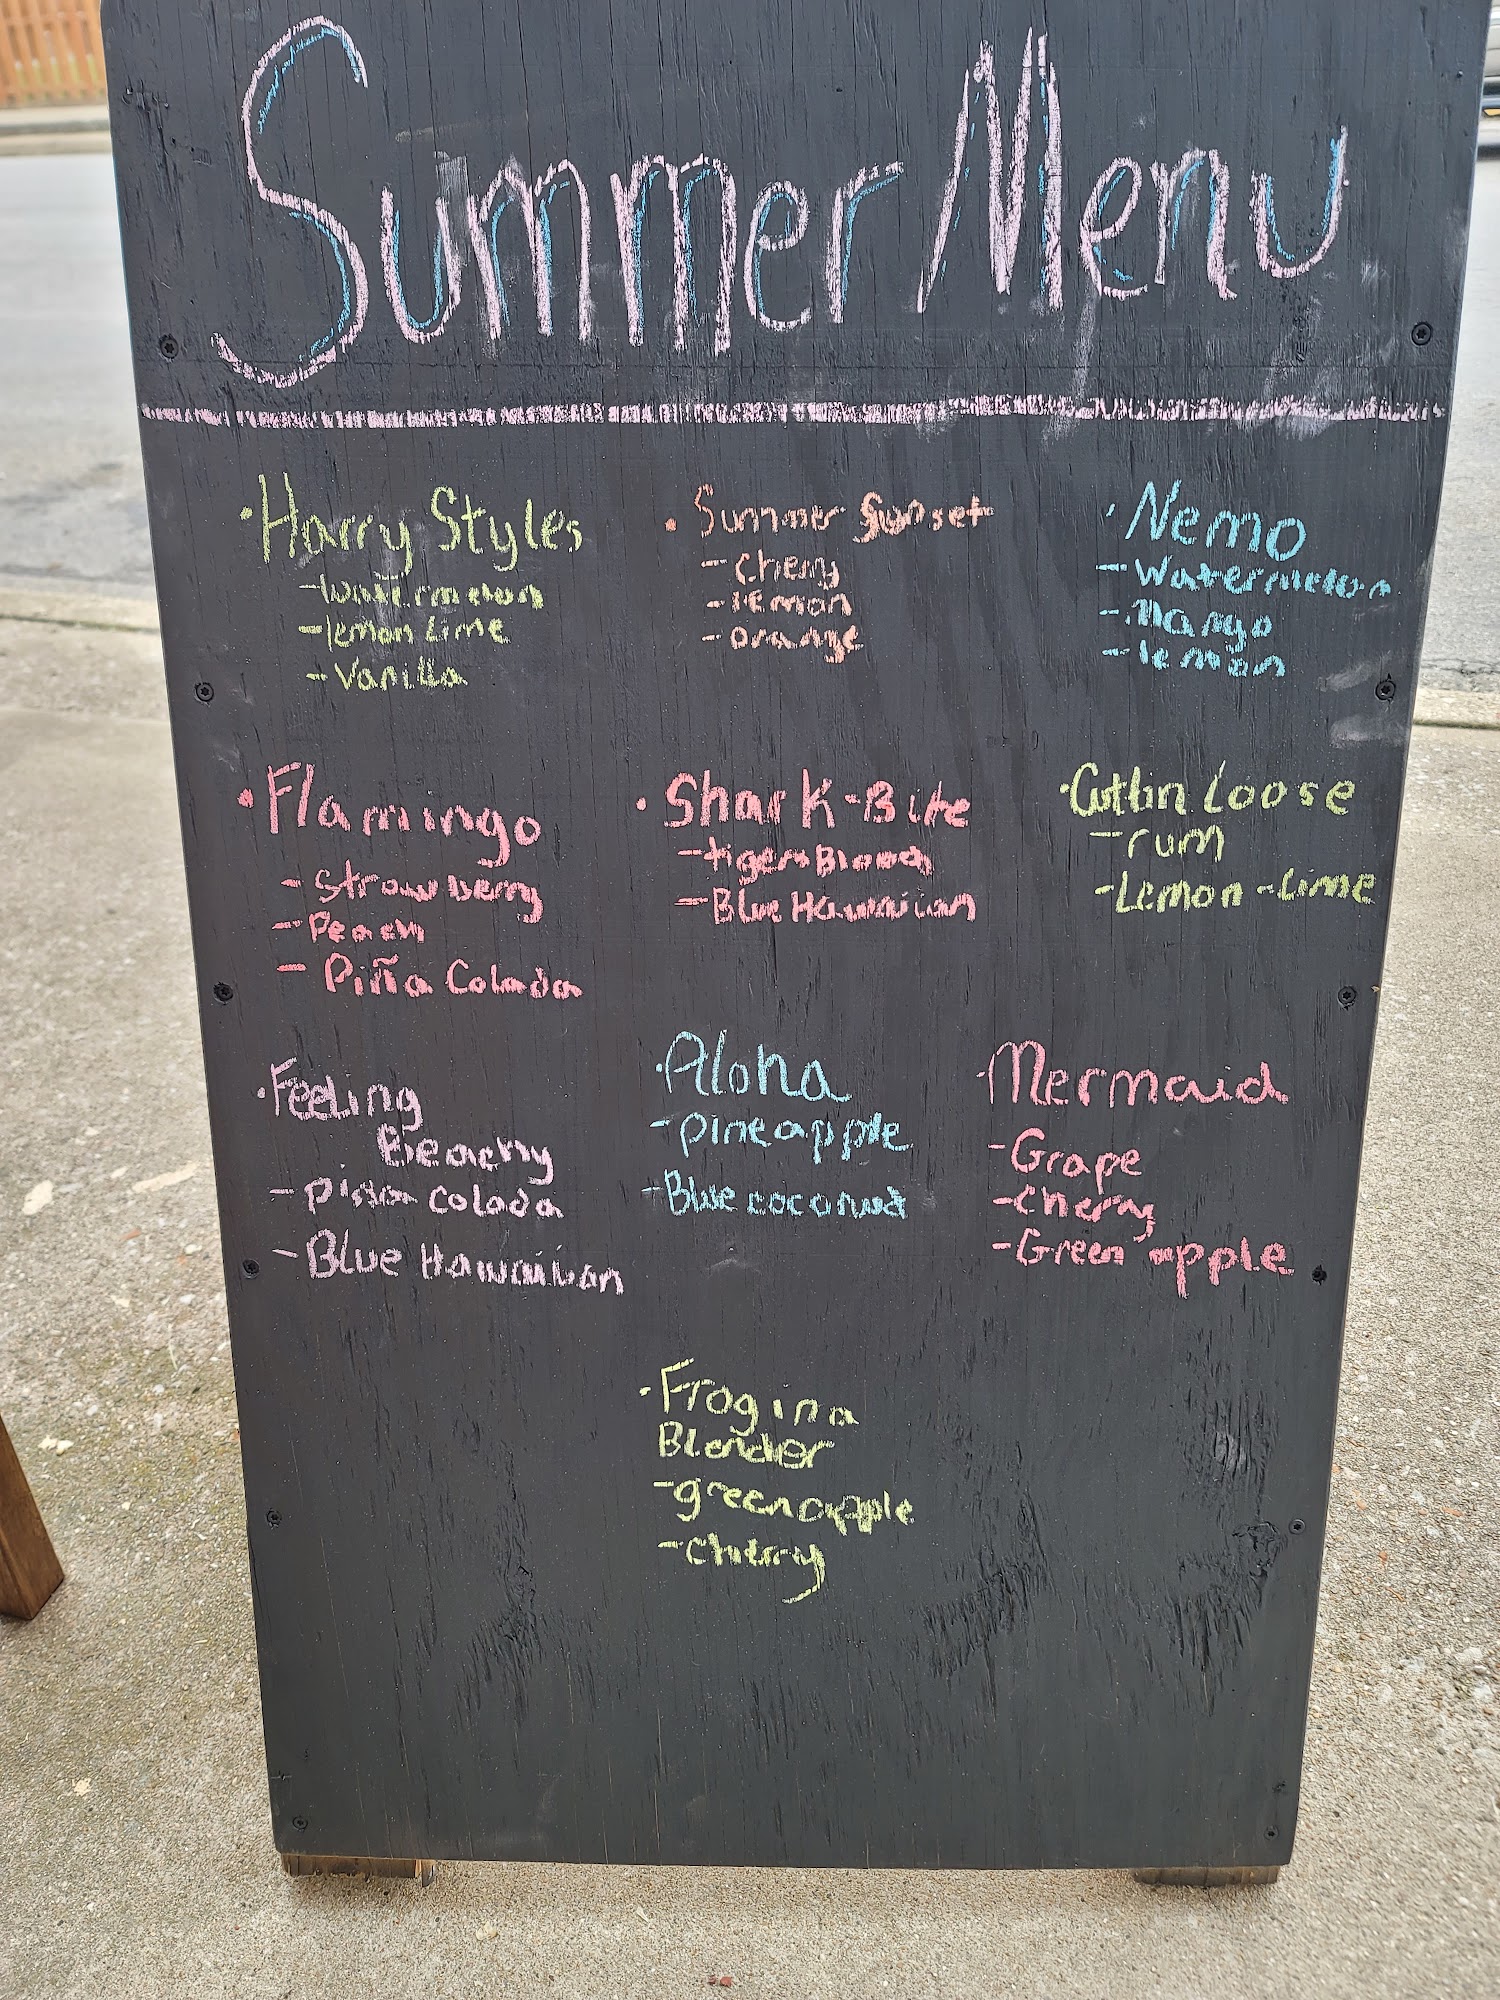 Summer Menu
• Harry Styles
- Watermelon
- lemon Lime
- Vanilla
• Summer Sunset
- Cherry
- lemon
- orange
• Nemo
- Watermelon
- Mango
- lemon
• Flamingo
- Strawberry
- Peach
- Piña Colada
• Shark-Bite
- tigers Blood
- Blue Hawaiian
• Cuttin Loose
- rum
- Lemon-Lime
• Feeling
Beachy
- Piña Colada
- Blue Hawaiian
• Aloha
- Pineapple
- Blue coconut
• Mermaid
- Grape
- Cherry
- Green apple
• Frog in a
Blender
- green apple
- cherry